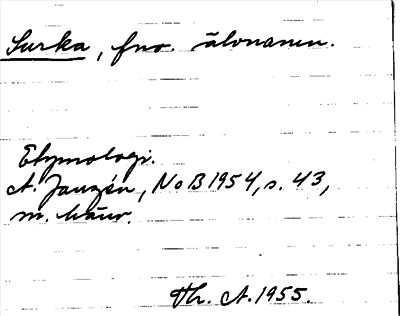 Surka, fno. älvnamn.
Etymologi.
A. Janzén, NoB 1954, s. 43,
m. hänv.
Th. A. 1955.